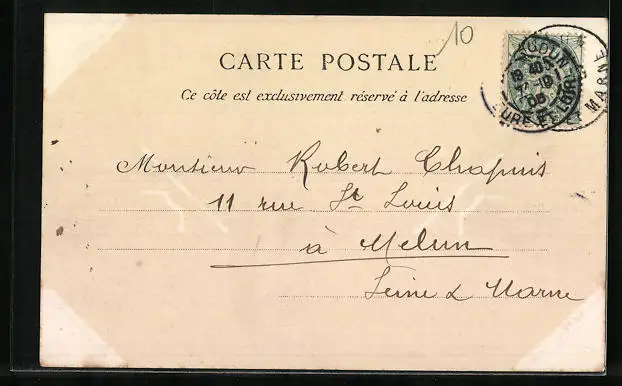 10
CARTE POSTALE
Ce côté est exclusivement réservé à l'adresse
Monsieur Robert Chapuis
11 rue St Louis
à Melun
Seine & Marne
EURE ET LOIR
MARNE